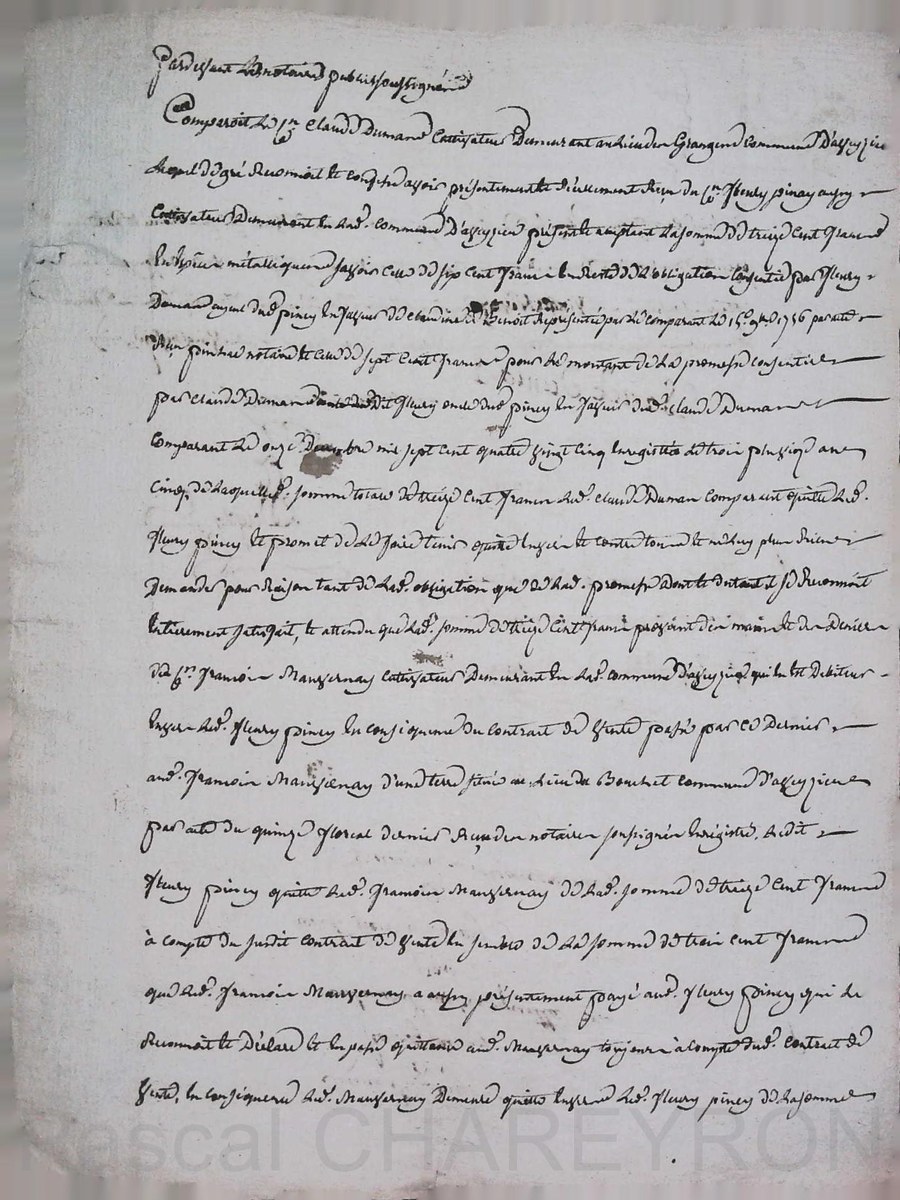 Pardevant les notaires publics soussignés
Comparoit le Cn Claude Dumand Cultivateur Demeurant au Lieu des Granges Commune D'aveyzieu
Lequel de gré Reconnoit et confesse avoir présentement et réellement Reçu du Cn fleury piney aussy
Cultivateur Demeurant en lade. Commune D'aveyzieu présent et acceptant La somme de treize Cent francs
En Espèces métalliques savoir celle de six cent francs En Reste de L'obligation Consentie par fleury
Dumand ayeul dud. piney En faveur de Claudine Benoit Représentée par Le Comparant Le 15e. 9bre 1756 par acte
Reçu notaire et celle de sept Cent francs pour le montant de La promesse consentie
par Claude Duman dit fleury oncle dud. piney En faveur dud. Claude Duman
Comparant Le onze Décembre mil sept cent quatre vingt Cinq Enregistrée Le trois pluviose an
Cinq, de Laquelle de. somme totale de treize Cent francs Led. Claude Duman Comparant quitte Led.
fleury piney et promet de Le faire tenir quitte Envers et contre tous et ne Luy plus Rien
Demander pour Raison tant de Lad. obligation que de Lad. promesse Dont et du tout il se Reconnoit
Entierement satisfait, et attendu que Lad. somme de treize Cent francs provient des mains et des Deniers
de Cn. françois Mauvernay Cultivateur Demeurant En Lad. commune D'aveyzieu qui En Est Debiteur
Envers Led. fleury piney En conséquence du contrat de Vente passé par ce Dernier
aud. françois Mauvernay d'une terre située au Lieu du Bouchet commune D'aveyzieu
par acte du quinze floreal dernier Reçu des notaires soussignés Enregistré, Ledit
fleury piney quitte Led. françois Mauvernay de Lad. somme de treize Cent francs
à compte du susdit contrat de Vente En semble de La somme de trois cent francs
que Led. françois Mauvernay a aussy présentement payé aud. fleury piney qui le
Reconnoit et Déclare et En passe quittance aud. Mauvernay toujours à Compte dud. Contract de
Vente, En conséquence Led. Mauvernay Demeure quitte Envers Led. fleury piney de La somme
Pascal CHAREYRON